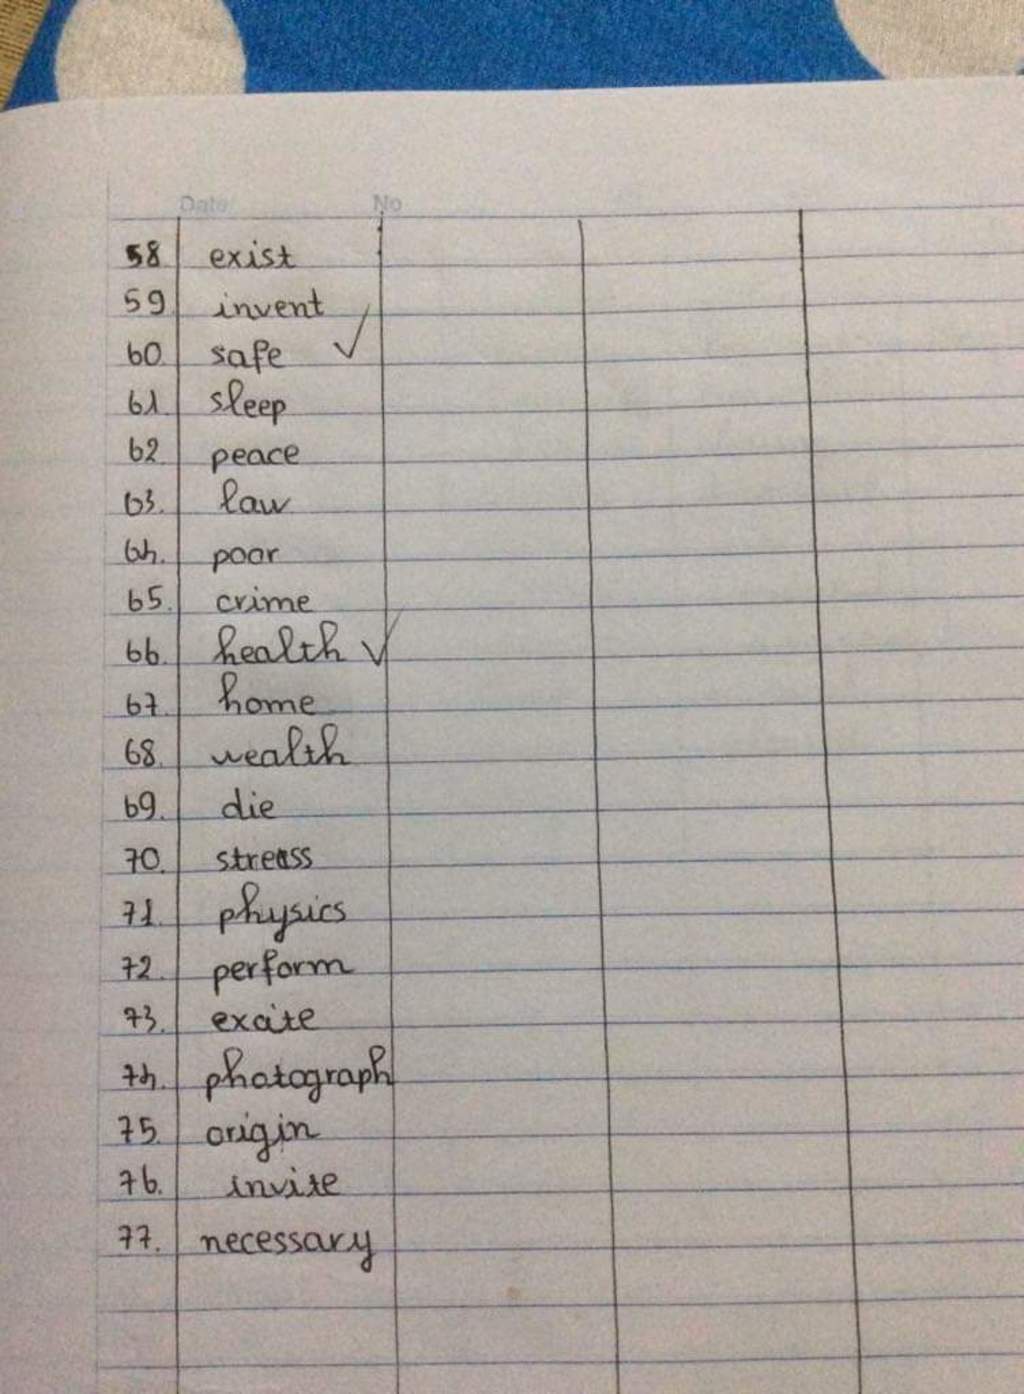 Date No
58 exist
59 invent
60. safe ✓
61. sleep
62 peace
63. law
64. poor
65. crime
66. health ✓
67. home
68. wealth
69. die
70. stress
71. physics
72. perform
73. excite
74. photograph
75. origin
76. invite
77. necessary